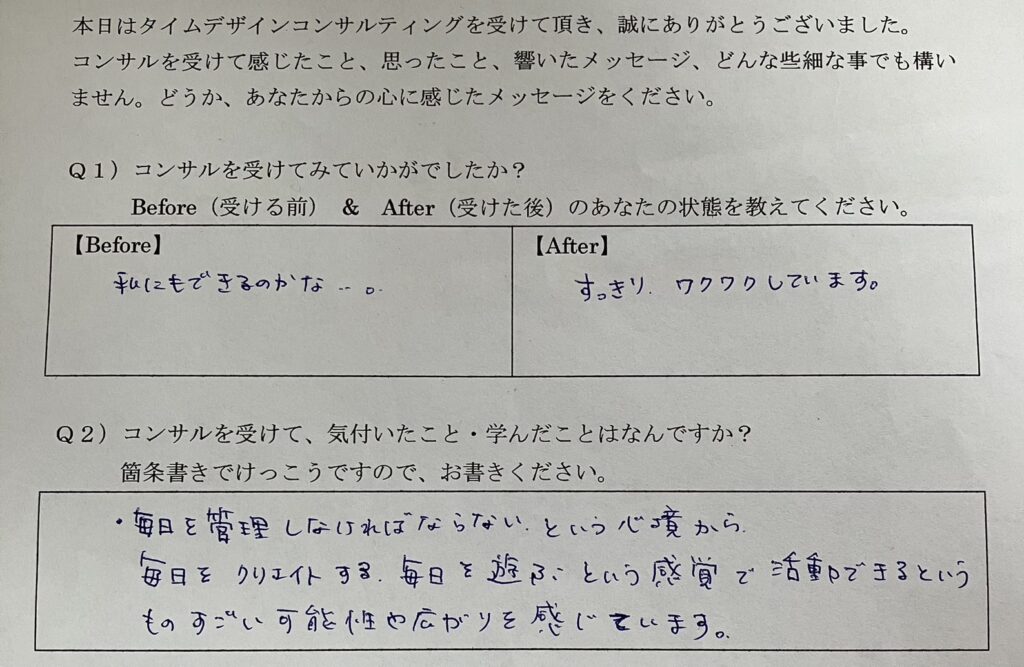 本日はタイムデザインコンサルティングを受けて頂き、誠にありがとうございました。
コンサルを受けて感じたこと、思ったこと、響いたメッセージ、どんな些細な事でも構い
ません。どうか、あなたからの心に感じたメッセージをください。
Q1）コンサルを受けてみていかがでしたか？
Before（受ける前） & After（受けた後）のあなたの状態を教えてください。
【Before】
私にもできるのかな…。
【After】
すっきり、ワクワクしています。
Q2）コンサルを受けて、気付いたこと・学んだことはなんですか？
箇条書きでけっこうですので、お書きください。
・毎日を管理しなければならない、という心境から、
毎日をクリエイトする、毎日を遊ぶという感覚で活動できるという
ものすごい可能性や広がりを感じています。